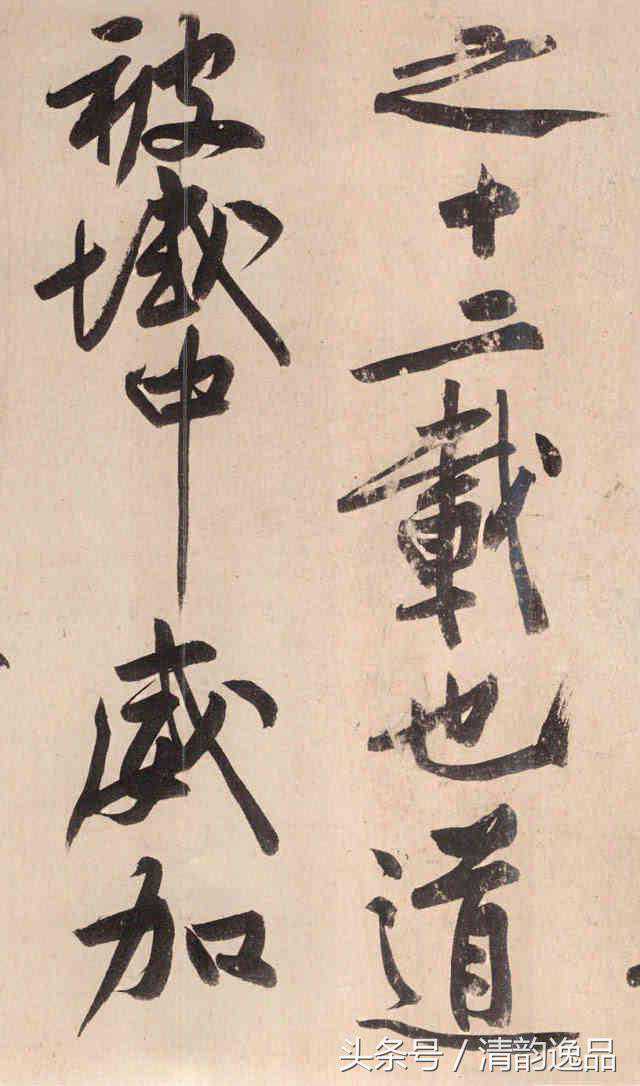 之十二載也道
被域中威加
头条号 / 清韵逸品